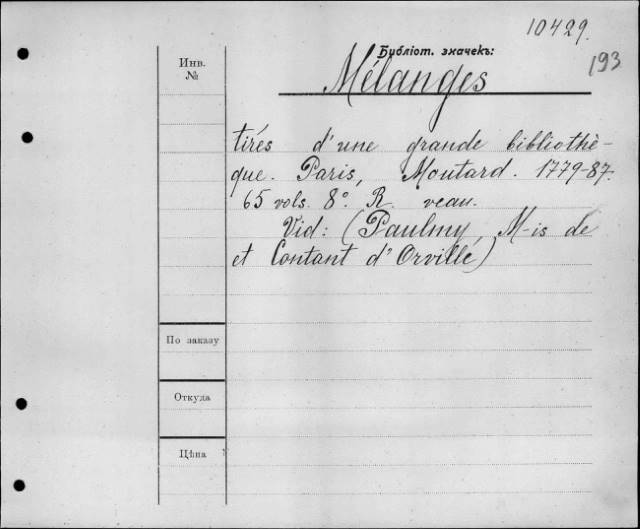 10429.
Библіот. значекъ:
193
Инв.
№
Mélanges
tirés d'une grande bibliothè-
que. Paris, Moutard. 1779-87.
65 vols. 8º. R. veau.
Vid: (Paulmy, M-is de
et Contant d'Orville)
По заказу
Откуда
Цѣна